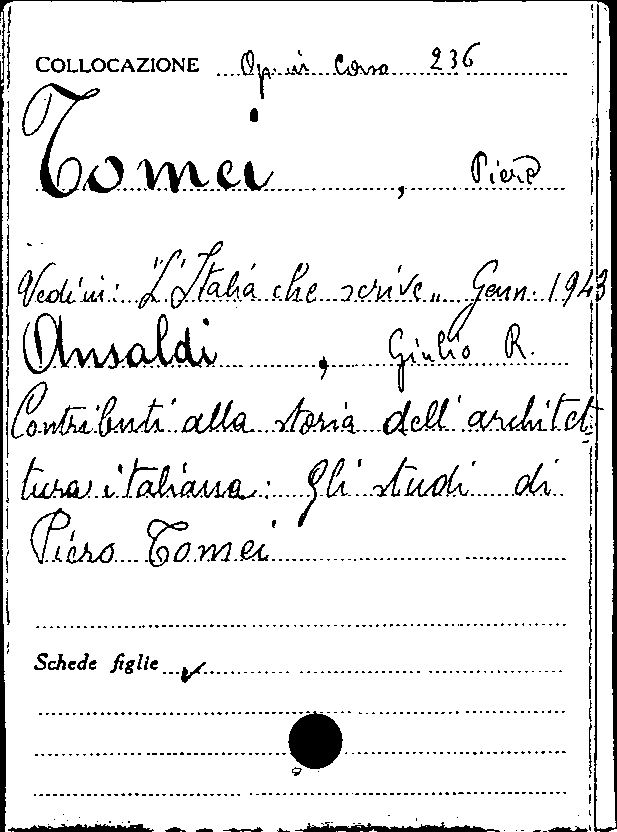 COLLOCAZIONE Op. in corso 236
Tomei, Piero
Vedi in: "L'Italia che scrive" Genn. 1943
Ansaldi, Giulio R.
Contributi alla storia dell'architet-
tura italiana: Gli studi di
Piero Tomei
Schede figlie ✓